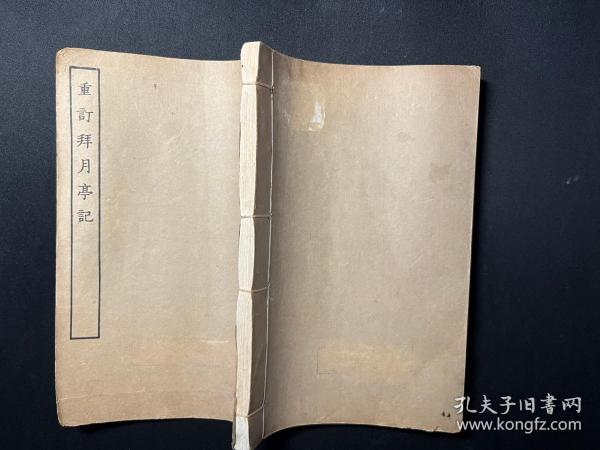 重訂拜月亭記
孔夫子旧書网
www.kongfz.com